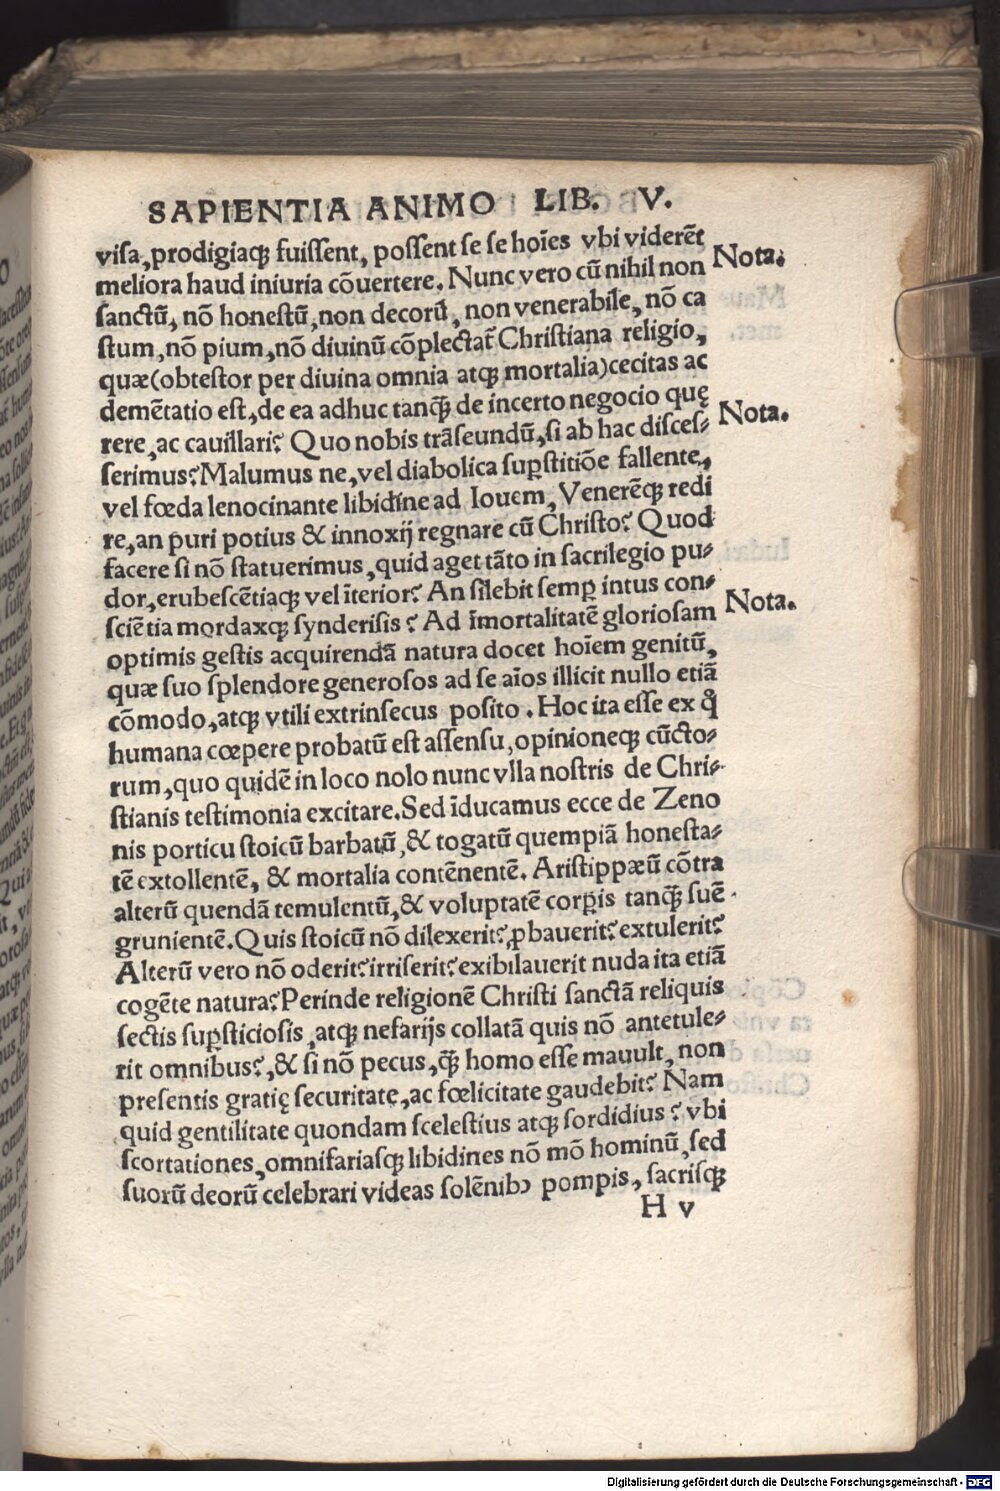 SAPIENTIA ANIMO LIB. V.
visa, prodigiaqꝫ fuissent, possent se se hoīes vbi viderēt
Nota.
meliora haud iniuria cōuertere. Nunc vero cū nihil non
sanctū, nō honestū, non decorū, non venerabile, nō ca
stum, nō pium, nō diuinū cōplectat̄ Christiana religio,
quæ(obtestor per diuina omnia atqꝫ mortalia)cecitas ac
demētatio est, de ea adhuc tanq̄ꝫ de incerto negocio quę
Nota.
rere, ac cauillari? Quo nobis trāseundū, si ab hac disces⸗
serimus? Malumus ne, vel diabolica suꝑstitiōe fallente,
vel fœda lenocinante libidine ad Iouem, Venerēqꝫ redi
re, an puri potius & innoxij regnare cū Christo? Quod
facere si nō statuerimus, quid aget tāto in sacrilegio pu⸗
dor, erubescētiaqꝫ vel īterior? An silebit semꝑ intus con⸗
Nota.
sciētia mordaxqꝫ synderisis? Ad īmortalitatē gloriosam
optimis gestis acquirendā natura docet hoīem genitū,
quæ suo splendore generosos ad se aīos illicit nullo etiā
cōmodo, atqꝫ vtili extrinsecus posito. Hoc ita esse ex q̊
humana cœpere probatū est assensu, opinioneqꝫ cūcto⸗
rum, quo quidē in loco nolo nunc vlla nostris de Chri⸗
stianis testimonia excitare. Sed īducamus ecce de Zeno
nis porticu stoicū barbatū, & togatū quempiā honesta⸗
tē extollentē, & mortalia contēnentē. Aristippæū cōtra
alterū quendā temulentū, & voluptatē corꝑis tanq̄ꝫ suē
grunientē. Quis stoicū nō dilexerit? ꝓbauerit? extulerit?
Alterū vero nō oderit? irriserit? exibilauerit nuda ita etiā
cogēte natura? Perinde religionē Christi sanctā reliquis
sectis suꝑsticiosis, atqꝫ nefarijs collatā quis nō antetule⸗
rit omnibus?, & si nō pecus, q̄ꝫ homo esse mauult, non
presentis gratię securitate, ac fœlicitate gaudebit? Nam
quid gentilitate quondam scelestius atqꝫ sordidius? vbi
scortationes, omnifariasqꝫ libidines nō mō hominū, sed
suorū deorū celebrari videas solēnibꝰ pompis, sacrisqꝫ
H v
Digitalisierung gefördert durch die Deutsche Forschungsgemeinschaft - DFG